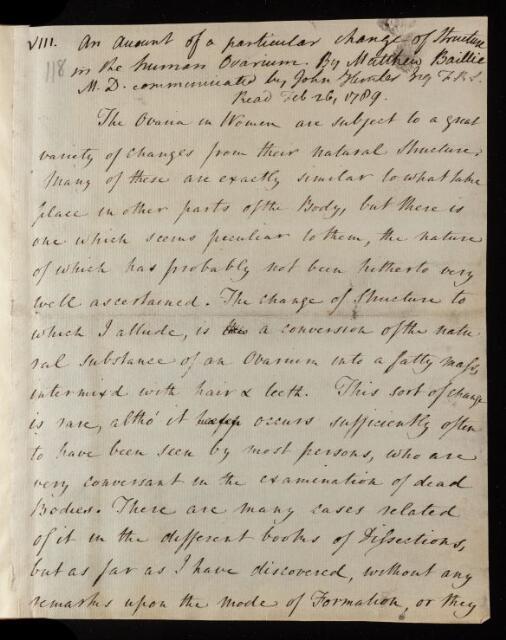 VIII. An account of a particular change of Structure
118
in the human Ovarium. By Matthew Baillie
M. D. communicated by John Hunter Esq F.R.S.
Read Feb 26, 1789.
The Ovaria in Women are subject to a great
variety of changes from their natural Structure;
many of these are exactly similar to what take
place in other parts of the Body, but there is
one which seems peculiar to them, the nature
of which has probably not been hitherto very
well ascertained. The change of Structure to
which I allude, is a conversion of the natu
ral substance of an Ovarium into a fatty mass,
intermix'd with hair & teeth. This sort of change
is rare, altho' it occurs sufficiently often
to have been seen by most persons, who are
very conversant in the examination of dead
Bodies. There are many cases related
of it in the different books of Dissections,
but as far as I have discovered, without any
remarks upon the mode of Formation, or they